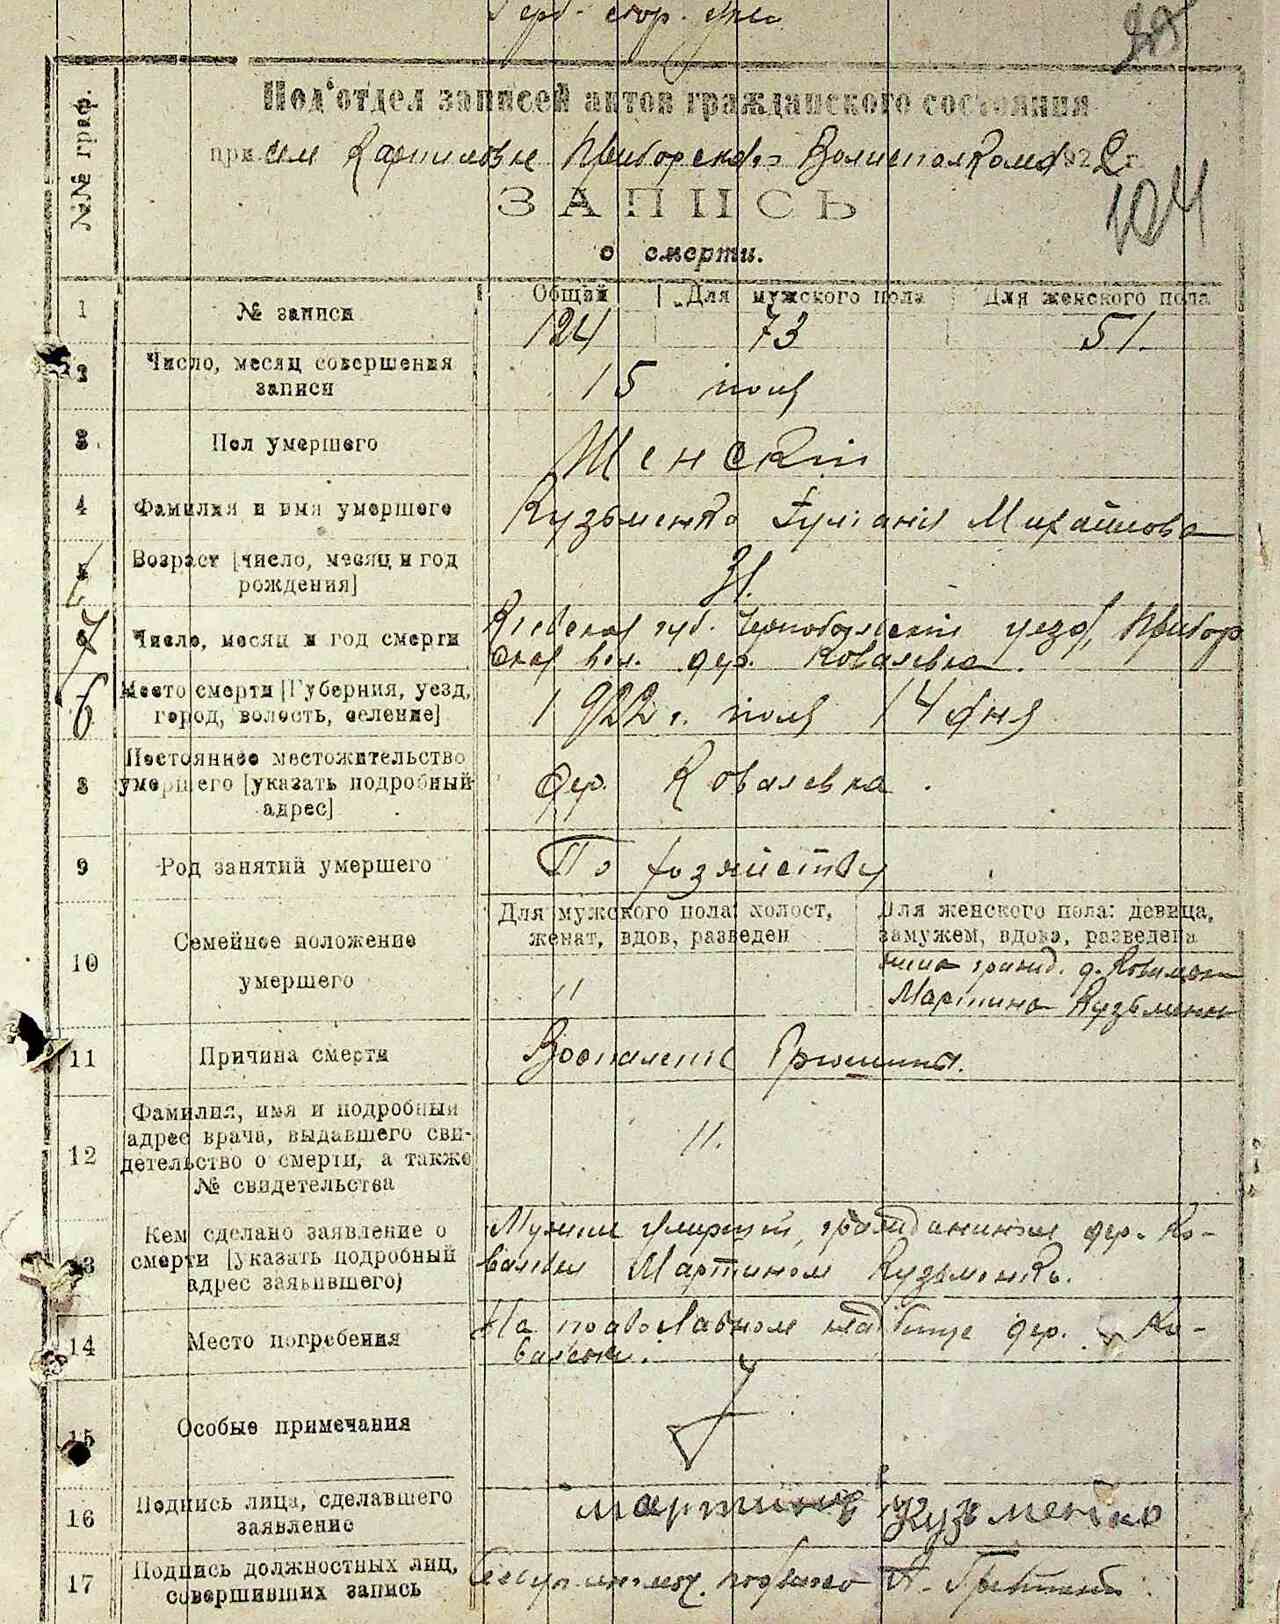 Герб. сбор. упл.
Под'отдел записей актов гражданского состояния
при сел Карпиловке Приборского Волисполкома 1922 г.
104
ЗАПИСЬ
о смерти.
№№ граф.
Общий Для мужского пола Для женского пола
1 № записи 124 73 51.
2 Число, месяц совершения
записи 15 июля
3 Пол умершего Женский
4 Фамилия и имя умершего Кузьменко Иулiанiя Михайлова
5 Возраст [число, месяц и год
рождения] 31.
7 Число, месяц и год смерти Кiевская губ. Чернобыльскiй уезд, Прибор
ская вол. дер. Ковалевка.
6 Место смерти [Губерния, уезд,
город, волость, селение] 1922 г. июля 14 дня
8 Постоянное местожительство
умершего [указать подробный
адрес] дер. Ковалевка.
9 Род занятий умершего По хозяйству
Для мужского пола: холост,
женат, вдов, разведен
Для женского пола: девица,
замужем, вдова, разведена
10 Семейное положение
умершего "
гражд. д. Ковалевки
Мартина Кузьменко
11 Причина смерти Воспаленiе брюшины.
12 Фамилия, имя и подробный
адрес врача, выдавшего сви-
детельство о смерти, а также
№ свидетельства ".
13 Кем сделано заявление о
смерти [указать подробный
адрес заявившего) Мужем умершей, гражданином дер. Ко-
валевки Мартином Кузьменко.
14 Место погребения На православном кладбище дер. Ко-
валевки.
15 Особые примечания
16 Подпись лица, сделавшего
заявление мартинъ Кузьменко
17 Подпись должностных лиц,
совершивших запись